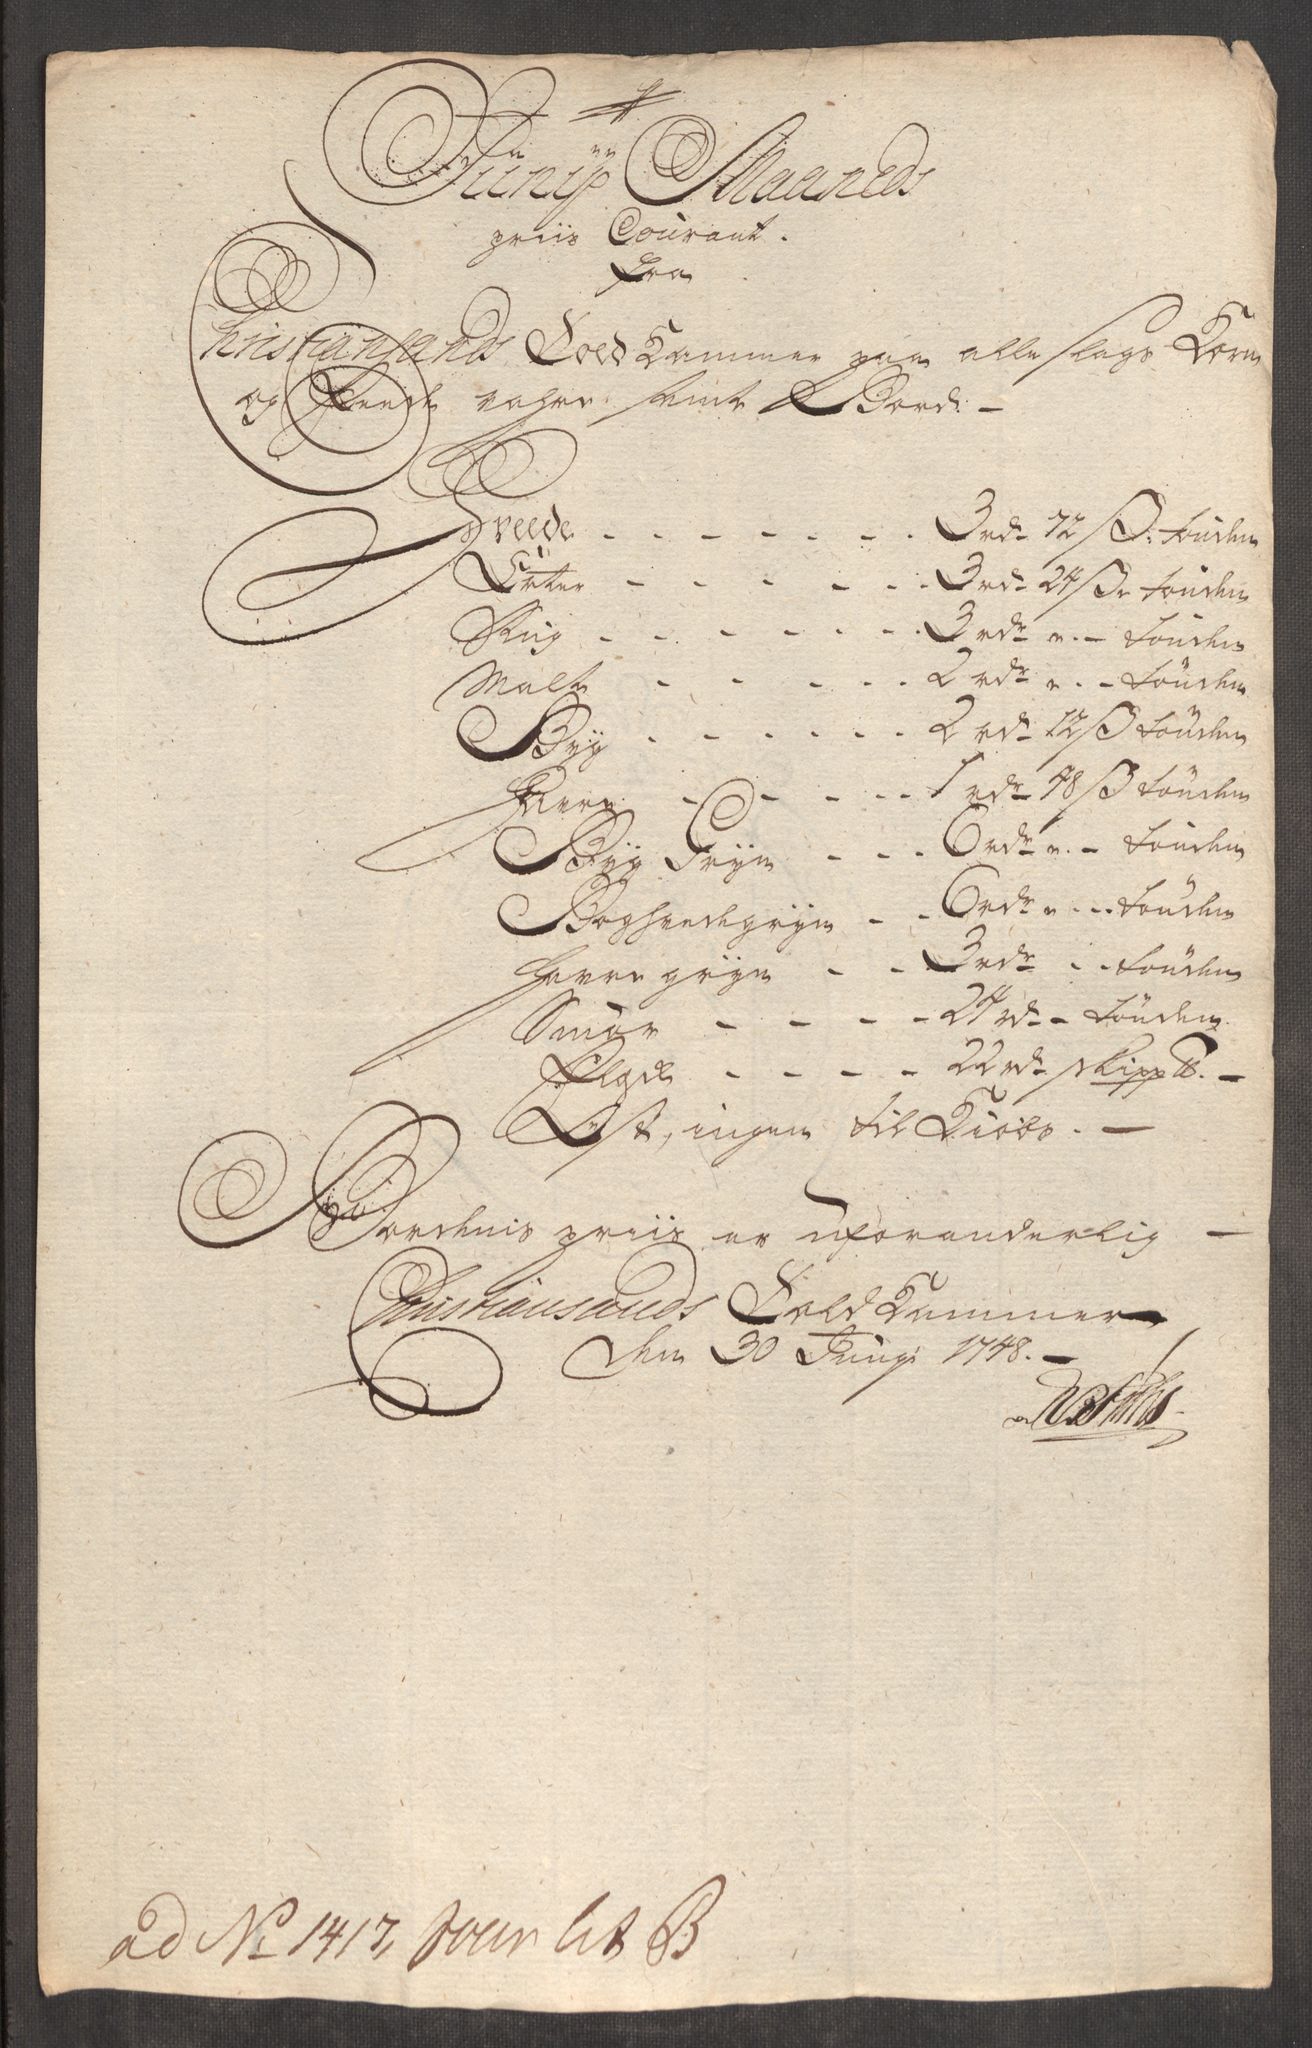 Junÿ Maaneds
priis Courant.
fra
Christiansands Told Kammer paa alle slags Korn
og feede vahre samt Bord. -
Hveede - - - - - - - 3 rdr 72 ß. tønden
Erter - - - - - - - 3 rdr 24 ß. tønden
Rug - - - - - - - 3 rdr " - tønden
Malt - - - - - - 2 rdr " - tønden
Byg - - - - - - 2 rdr 12 ß tønden
Havre - - - - - 1 rdr 48 ß tønden
Byg Gryn - - - 6 rdr " - tønden
Boghvedegryn - - 6 rdr " - tønden
havre gryn - - 3 rdr - - tønden
Smør - - - - 24 rd - tønden
Flæsk - - - - 22 rd skipp ℔. -
Ost, ingen til Kiøbs. -
Bordenis priis er uforanderlig -
Christiansands Told Kammer
den 30 Junÿ 1748. -
ad No 1417, Jour lit B